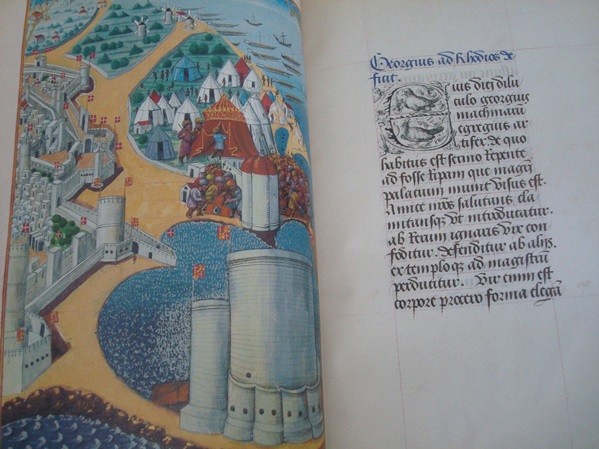 Georgius ad Rhodios de
ficit.
Eius diei dilu
culo georgius
machinarū
egregius ar
tifex de quo
habitus est sermo Repente
ad fosse Ripam que magni
palatium munit visus est.
Amice nr̄os salutans cla
mitansque vt introducatur.
ab Rerum ignaris vix con
foditur. defenditur ab aliis
ex temploque ad magistrū
perducitur. Vir enim est
corpore procero forma elegan